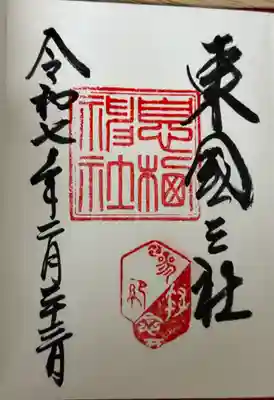 東國三社
息栖
神社
参拝
令和七年二月二十三日